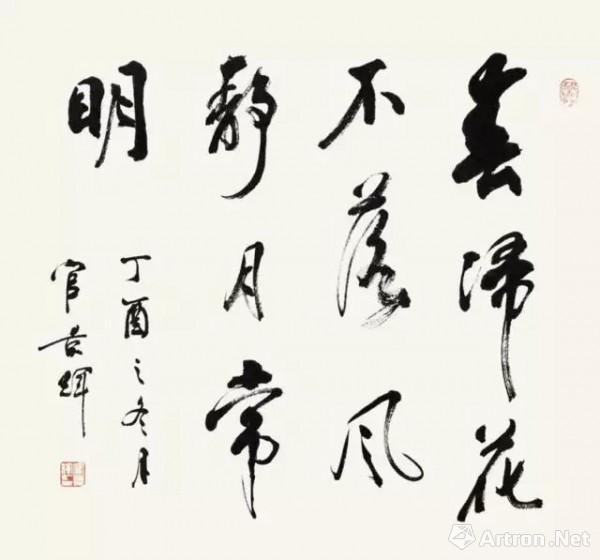 春歸花
不落风
静月常
明
丁酉之冬月
官景輝
Artron.Net